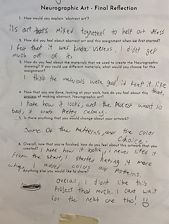 Neurographic Art - Final Reflection
1. How would you explain "abstract art"?
Is art that's mixed together to help at stress
2. How did you feel about abstract art and this assignment when we first started?
I felt that it was kinda useless, I didn't get
much out of it.
3. How do you feel about the materials that we used to create the Neurographic
drawing? If you could use different materials, what would you choose for this
assignment?
I think the materials were good, I don't it like
4. Now that you are done, looking at your work, how do you feel about the
process of making abstract, Neurographic art?
I like how it looks, and the process wasnt so
bad, it was pretty calming.
5. Is there anything that you would change about your artwork?
Some of the patterns and the color
choice
6. Overall, now that you're finished, how do you feel about this artwork that you
created?
I like how it looks, I never liked it
from the start, I started having it more
when I more colors and patterns.
7. Anything else you would like to share?
overall I didn't like this
project that much. I can't wait
for the next one tho!